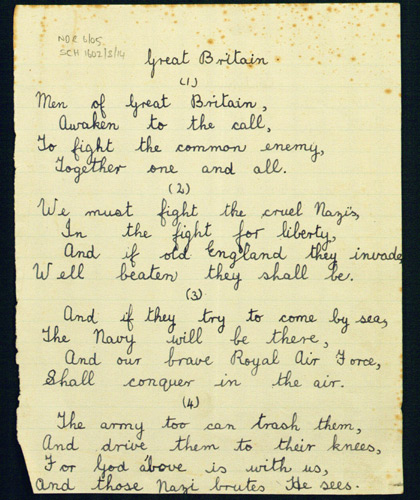 NDR 6/05
SCH 1602/5/14
Great Britain
(1)
Men of Great Britain,
Awaken to the call,
To fight the common enemy,
Together one and all.
(2)
We must fight the cruel Nazi's,
In the fight for liberty,
And if old England they invade
Well beaten they shall be.
(3)
And if they try to come by sea,
The Navy will be there,
And our brave Royal Air Force,
Shall conquer in the air.
(4)
The army too can trash them,
And drive them to their knees,
For God above is with us,
And those Nazi brutes He sees.